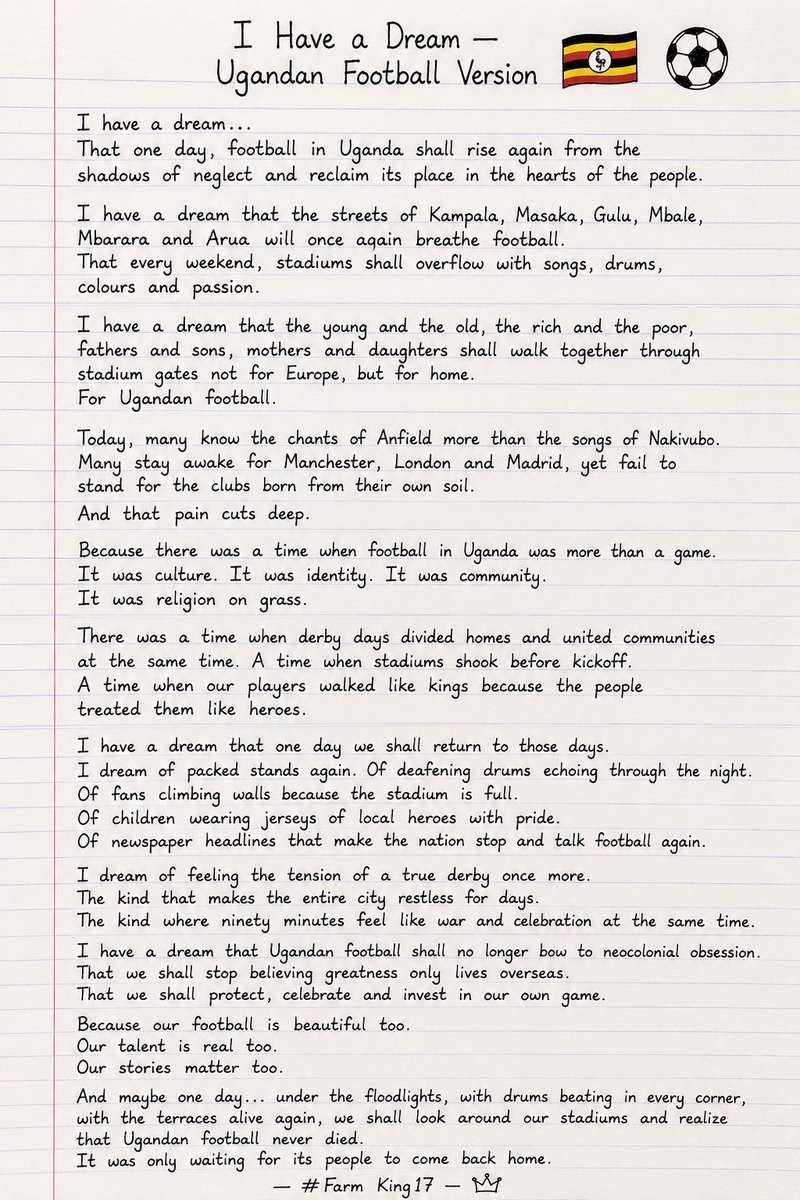 I Have a Dream —
Ugandan Football Version
I have a dream...
That one day, football in Uganda shall rise again from the
shadows of neglect and reclaim its place in the hearts of the people.
I have a dream that the streets of Kampala, Masaka, Gulu, Mbale,
Mbarara and Arua will once again breathe football.
That every weekend, stadiums shall overflow with songs, drums,
colours and passion.
I have a dream that the young and the old, the rich and the poor,
fathers and sons, mothers and daughters shall walk together through
stadium gates not for Europe, but for home.
For Ugandan football.
Today, many know the chants of Anfield more than the songs of Nakivubo.
Many stay awake for Manchester, London and Madrid, yet fail to
stand for the clubs born from their own soil.
And that pain cuts deep.
Because there was a time when football in Uganda was more than a game.
It was culture. It was identity. It was community.
It was religion on grass.
There was a time when derby days divided homes and united communities
at the same time. A time when stadiums shook before kickoff.
A time when our players walked like kings because the people
treated them like heroes.
I have a dream that one day we shall return to those days.
I dream of packed stands again. Of deafening drums echoing through the night.
Of fans climbing walls because the stadium is full.
Of children wearing jerseys of local heroes with pride.
Of newspaper headlines that make the nation stop and talk football again.
I dream of feeling the tension of a true derby once more.
The kind that makes the entire city restless for days.
The kind where ninety minutes feel like war and celebration at the same time.
I have a dream that Ugandan football shall no longer bow to neocolonial obsession.
That we shall stop believing greatness only lives overseas.
That we shall protect, celebrate and invest in our own game.
Because our football is beautiful too.
Our talent is real too.
Our stories matter too.
And maybe one day... under the floodlights, with drums beating in every corner,
with the terraces alive again, we shall look around our stadiums and realize
that Ugandan football never died.
It was only waiting for its people to come back home.
— #Farm King17 —